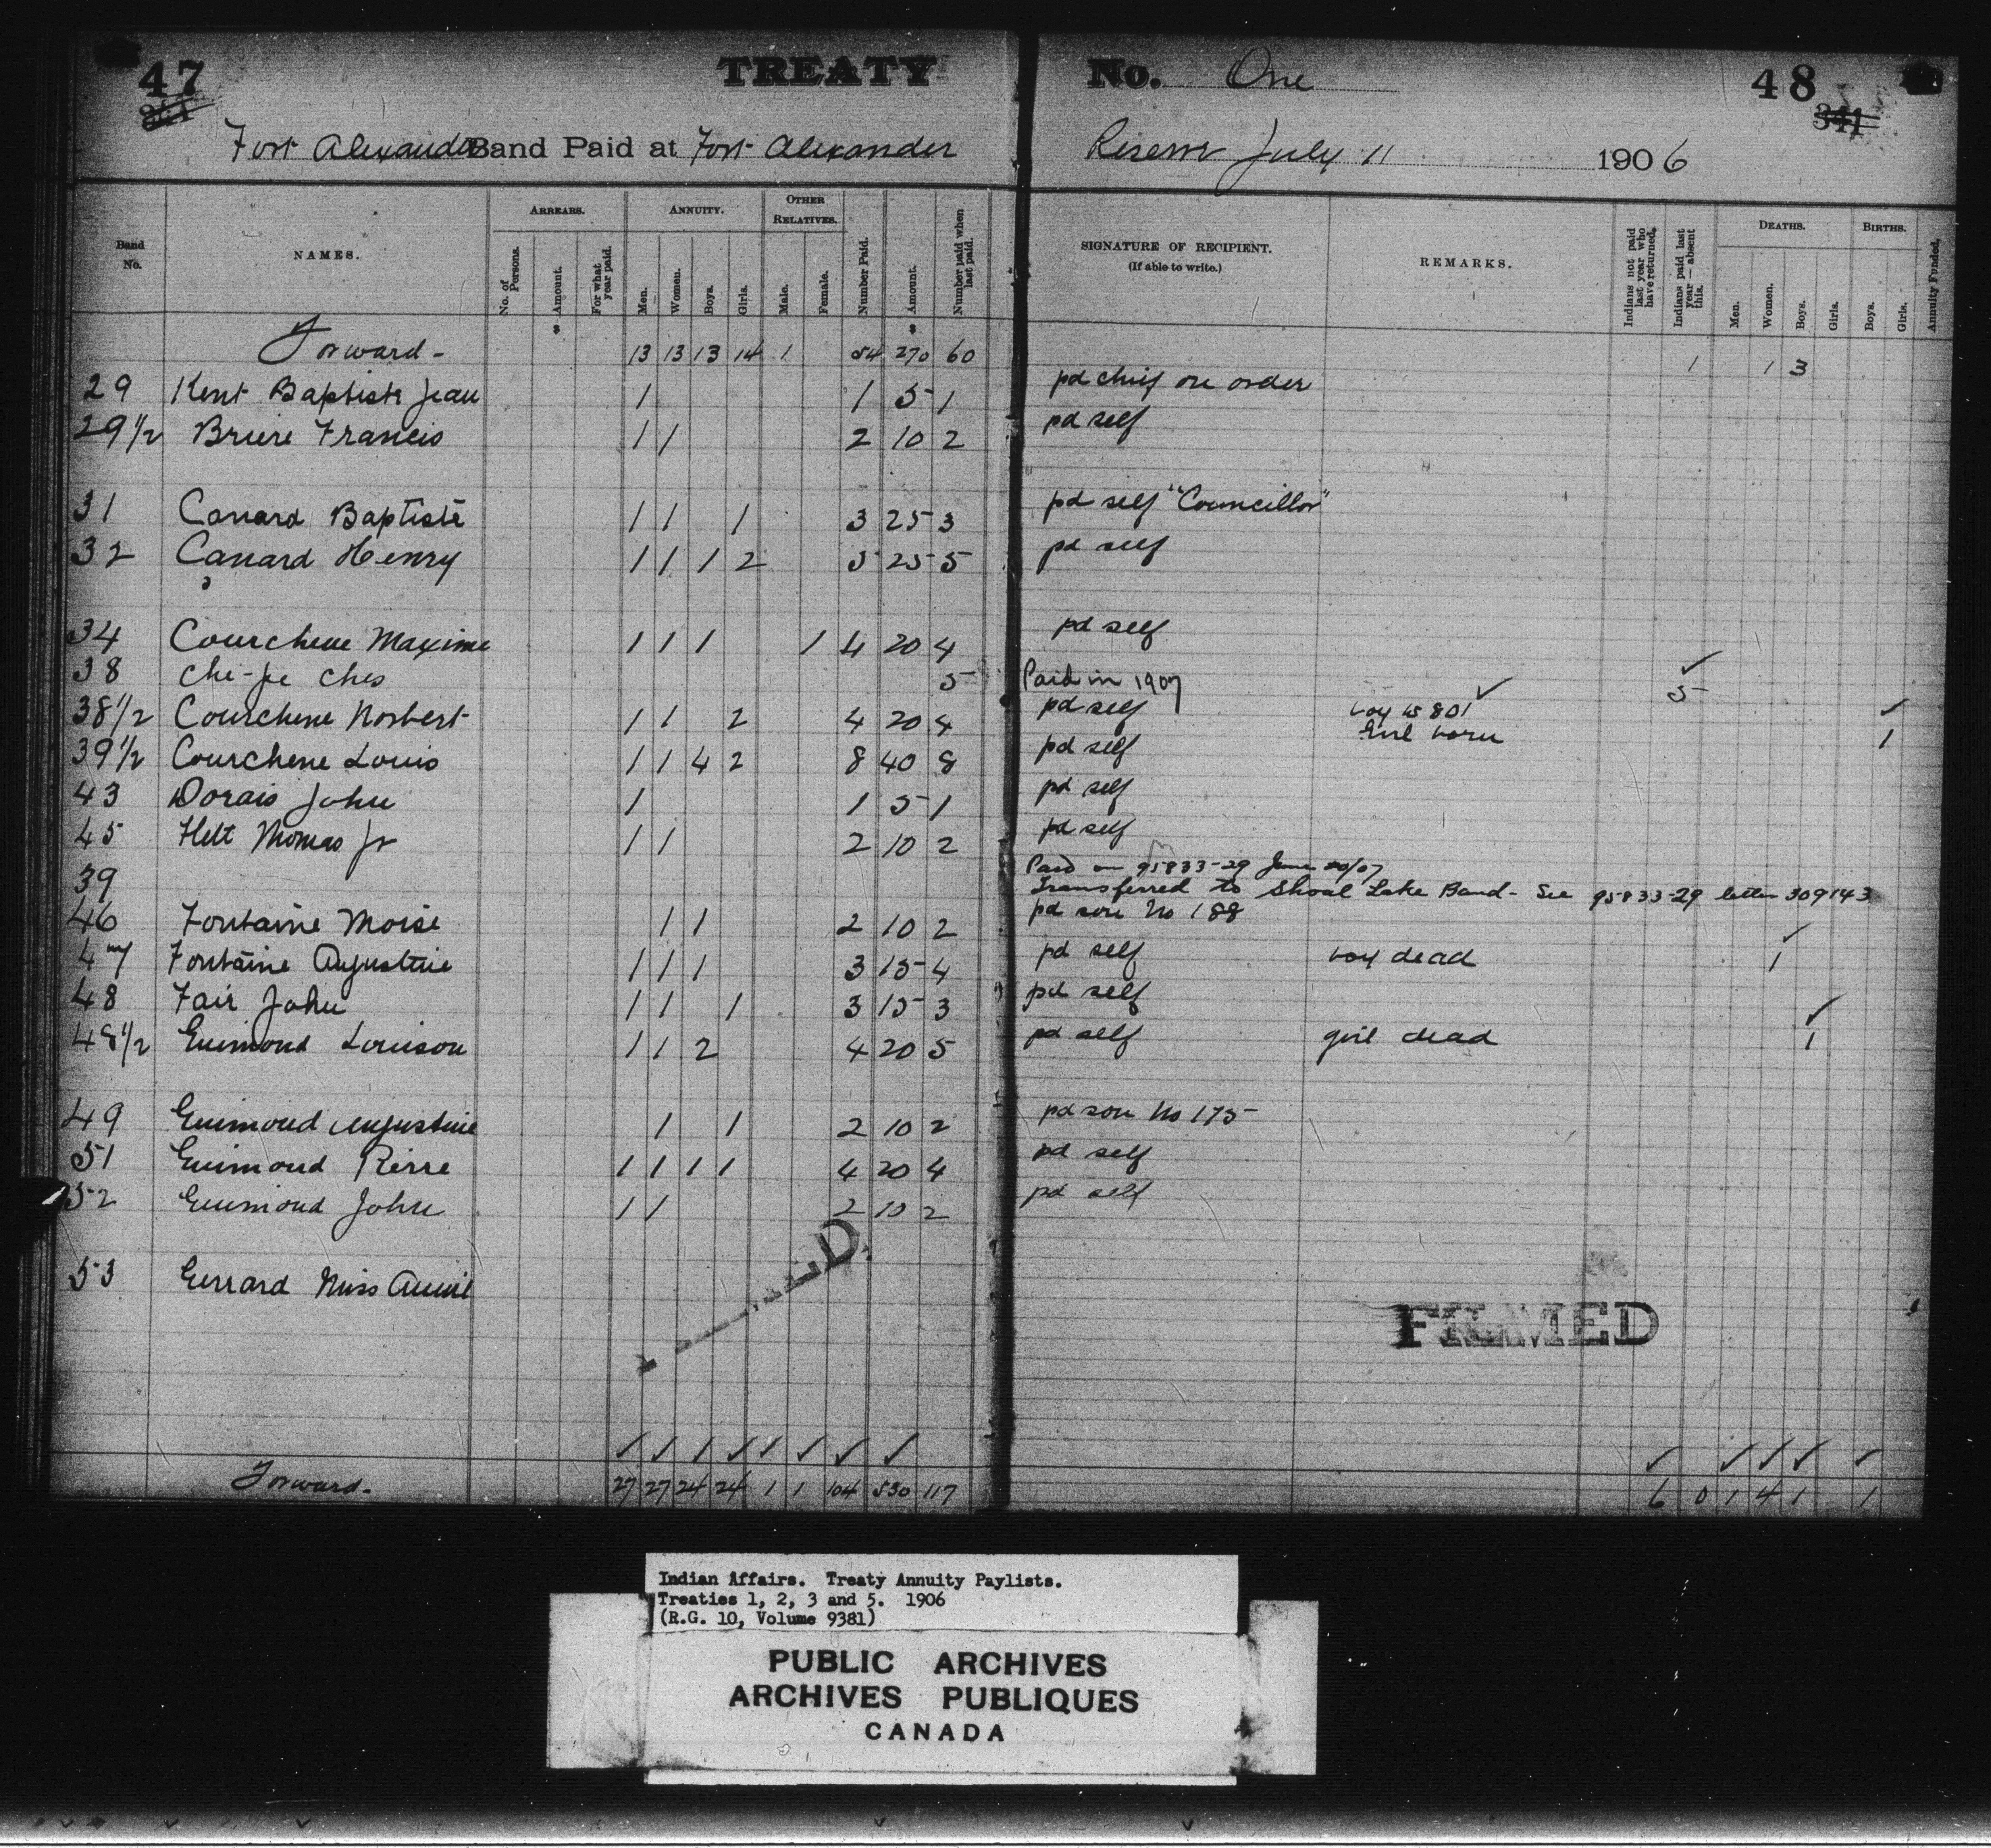 47 TREATY No. One 48
341 341
Fort Alexander Band Paid at Fort Alexander Reserve July 11 1906
Band No. NAMES. ARREARS. ANNUITY. OTHER RELATIVES. Number Paid. Amount. Number paid when last paid. SIGNATURE OF RECIPIENT. (If able to write.) REMARKS. Indians not paid last year who have returned. Indians paid last year — absent this. DEATHS. BIRTHS. Annuity Funded.
No. of Persons. Amount. For what year paid. Men. Women. Boys. Girls. Male. Female. Men. Women. Boys. Girls. Boys. Girls.
Forward - 13 13 13 14 1 54 270 60 1 1 3
29 Kent Baptiste Jean 1 1 5 1 pd chief on order
29 1/2 Briere Francis 1 1 2 10 2 pd self
31 Canard Baptiste 1 1 1 3 25 3 pd self "Councillor"
32 Canard Henry 1 1 1 2 5 25 5 pd self
34 Courchene Maxime 1 1 1 1 4 20 4 pd self
38 Che-pe ches 5 Paid in 1907 ✓ 5
38 1/2 Courchene Norbert 1 1 2 4 20 4 pd self boy is 801 ✓ ✓
Girl born 1
39 1/2 Courchene Louis 1 1 4 2 8 40 8 pd self
43 Dorais John 1 1 5 1 pd self
45 Flett Thomas Jr 1 1 2 10 2 pd self
Paid on 95833-29 June 20/07
39 Transferred to Shoal Lake Band - See 95833-29 letter 309143
46 Fontaine Moise 1 1 2 10 2 pd son No 188
47 Fontaine Augustine 1 1 1 3 15 4 pd self boy dead ✓ 1
48 Fair John 1 1 1 3 15 3 pd self
48 1/2 Guimond Louison 1 1 2 4 20 5 pd self girl dead ✓ 1
49 Guimond Augustine 1 1 2 10 2 pd son No 175
51 Guimond Pierre 1 1 1 1 4 20 4 pd self
52 Guimond John 1 1 2 10 2 pd self
53 Gerrard Miss Annie
FILMED
Forward - 27 27 24 24 1 1 104 530 117 6 0 1 4 1 1
Indian Affairs. Treaty Annuity Paylists.
Treaties 1, 2, 3 and 5. 1906
(R.G. 10, Volume 9381)
PUBLIC ARCHIVES
ARCHIVES PUBLIQUES
CANADA